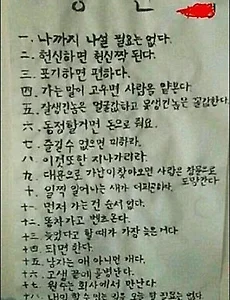 명언
一. 나까지 나설 필요는 없다.
二. 헌신하면 헌신짝 된다.
三. 포기하면 편하다.
四. 가는 말이 고우면 사람을 얕본다.
五. 잘생긴놈은 얼굴값하고 못생긴놈은 꼴값한다.
六. 동정할거면 돈으로 줘요.
七. 즐길 수 없으면 피하라.
八. 이것또한 지나가리라.
九. 대문으로 가난이 찾아오면 사랑은 창문으로
도망간다
十. 일찍 일어나는 새가 더피곤하다.
十一. 먼저 가는건 순서 없다.
十二. 똥차가고 벤츠온다.
十三. 늦었다고 할 때가 가장 늦은거다
十四. 되면 한다.
十五. 남자는 애 아니면 개다.
十六. 고생 끝에 골병난다.
十七. 원수는 회사에서 만난다
十八. 내일 할 수 있는 일을 오늘 할 필요는 없다